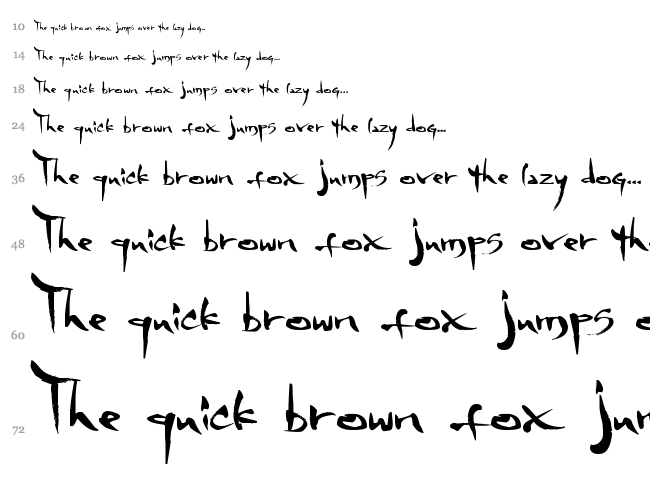 10 The quick brown fox jumps over the lazy dog...
14 The quick brown fox jumps over the lazy dog...
18 The quick brown fox jumps over the lazy dog...
24 The quick brown fox jumps over the lazy dog...
36 The quick brown fox jumps over the lazy dog...
48 The quick brown fox jumps over th
60 The quick brown fox jumps o
72 The quick brown fox jun